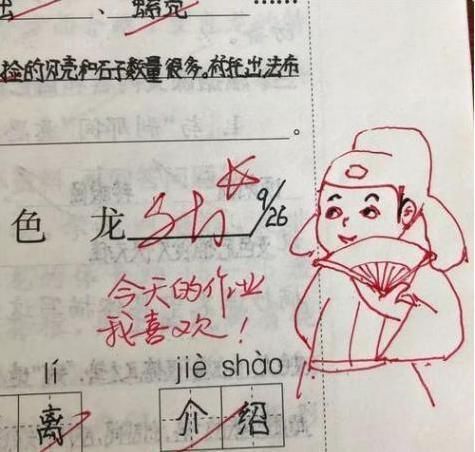 捡的贝壳和石子数量很多。衬托出法布
。
色 龙 9/26
今天的作业
我喜欢！
lí jiè shào
离 介 绍